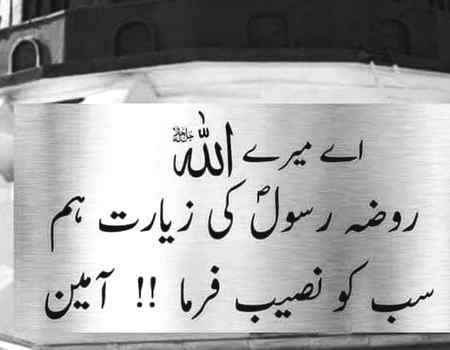 اے میرے اللہ ﷻ
روضہ رسولؐ کی زیارت ہم
سب کو نصیب فرما !! آمین